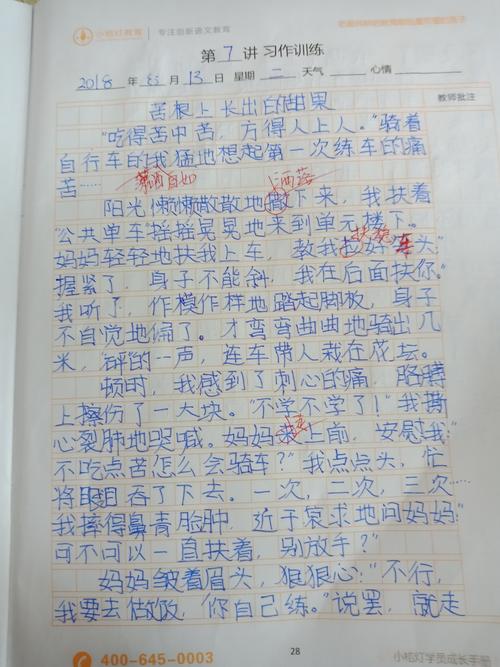 小桔灯教育 | 专注创新语文教育
第 7 讲 习作训练
2018 年 8 月 13 日 星期 二 天气 心情
教师批注
苦根上长出的甜果
“吃得苦中苦，方得人上人。”骑着
自行车的我猛地想起第一次练车的痛
苦……
潇洒自如
洒落
阳光懒懒散散地撒下来，我扶着
“公共单车摇摇晃晃地来到单元楼下。
扶稳车
妈妈轻轻地扶我上车，教我起好车头“
握紧了，身子不能斜，我在后面扶你。”
我听了，作模作样地踏起脚板，身子
不自觉地偏了。才弯弯曲曲地骑出几
米，砰的一声，连车带人栽在花坛。
顿时，我感到了刺心的痛，胳膊
上擦伤了一大块。“不学不学了！”我撕
心裂肺地哭喊。妈妈上前，安慰我“
不吃点苦怎么会骑车？”我点点头，忙
将眼目吞了下去。一次，二次，三次……
我摔得鼻青脸肿，近于哀求地问妈妈“
可不可以一直扶着，别放手？”
妈妈皱着眉头，狠狠心：“不行，
我要去做饭，你自己练。”说罢，就走
400-645-0003
28
小桔灯学员成长手册